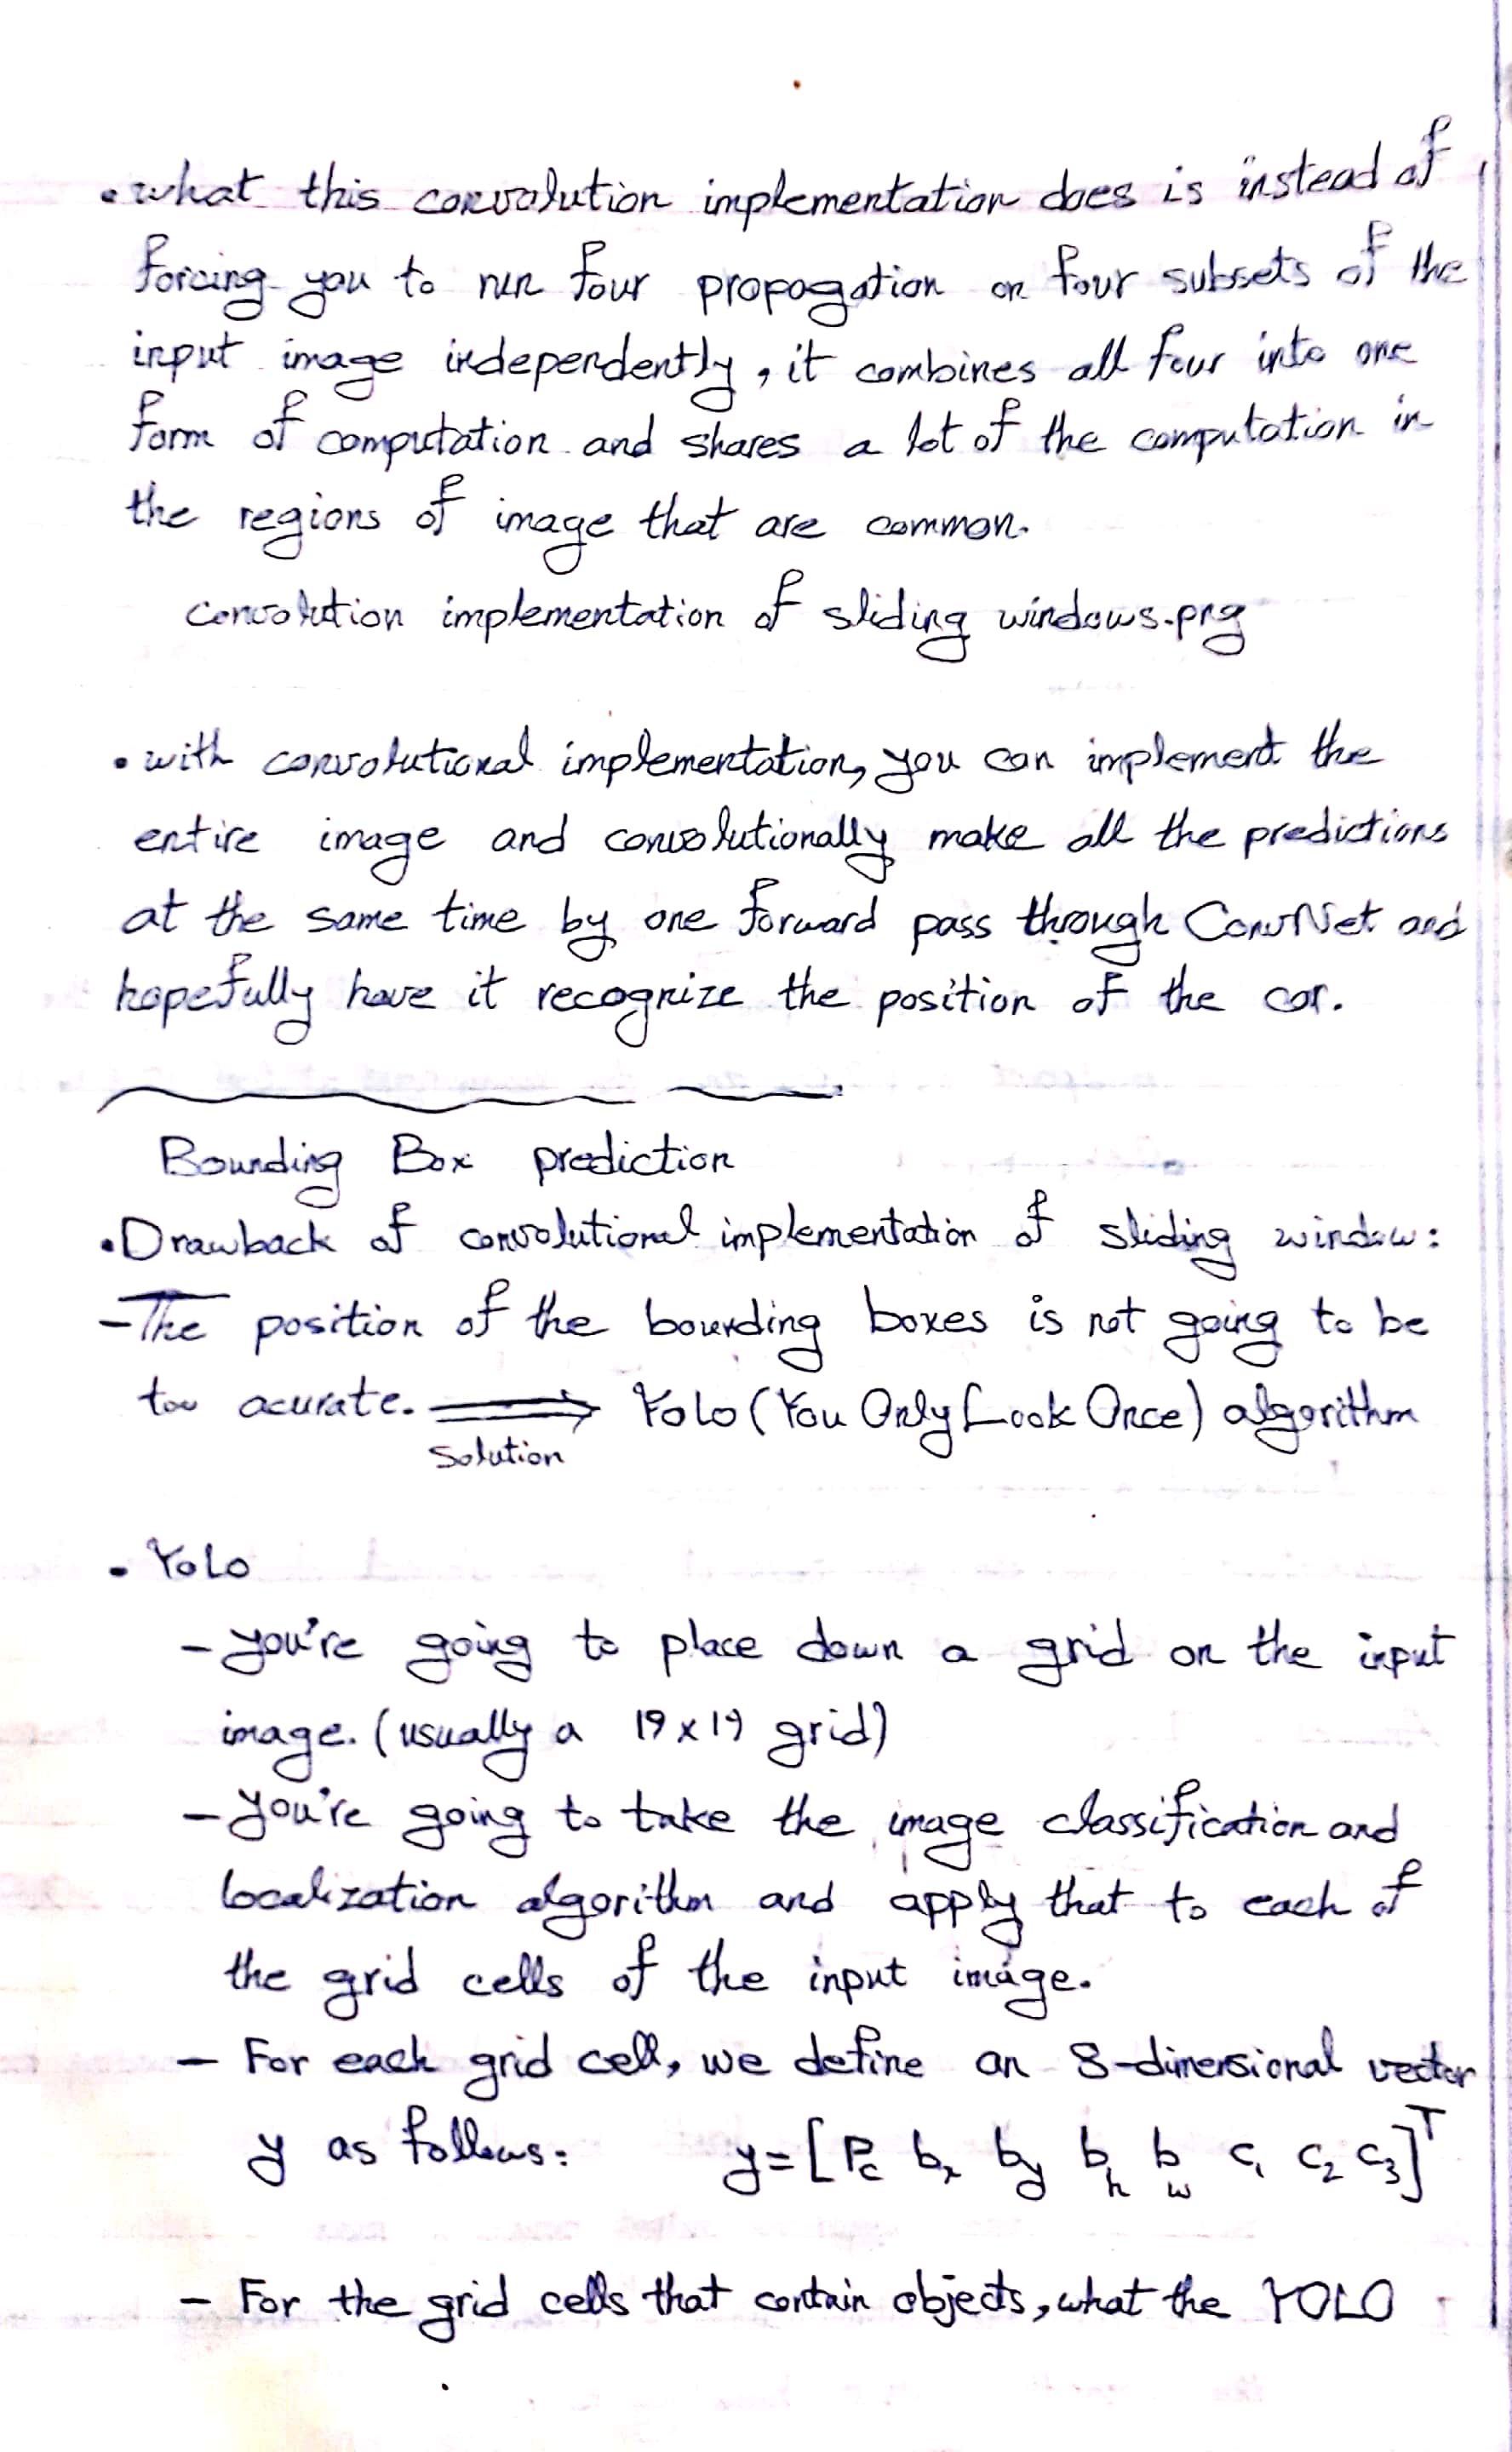 • what this convolution implementation does is instead of
forcing you to run four propogation on four subsets of the
input image independently, it combines all four into one
form of computation and shares a lot of the computation in
the regions of image that are common.
convolution implementation of sliding windows.png
• with convolutional implementation, you can implement the
entire image and convolutionally make all the predictions
at the same time by one forward pass through ConvNet and
hopefully have it recognize the position of the car.
Bounding Box prediction
• Drawback of convolutional implementation of sliding window:
- The position of the bounding boxes is not going to be
too acurate. ⟹ YoLo (You Only Look Once) algorithm
solution
• YoLo
- you're going to place down a grid on the input
image. (usually a 19 x 19 grid)
- you're going to take the image classification and
localization algorithm and apply that to each of
the grid cells of the input image.
- For each grid cell, we define an 8-dimensional vector
y as follows: y = [Pc bx by bh bw c1 c2 c3]^T
- For the grid cells that contain objects, what the YOLO